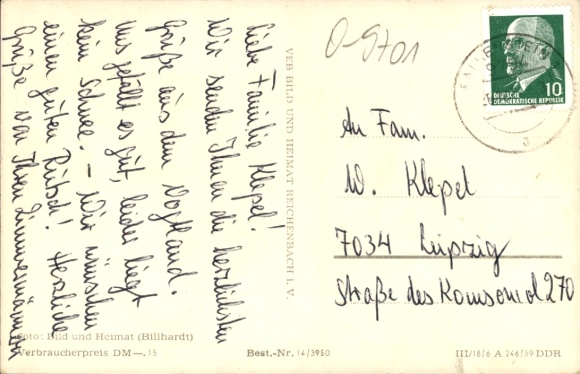 Liebe Familie Klepel!
Wir senden Ihnen die herzlichsten
Grüße aus dem Vogtland.
Uns gefällt es gut, leider liegt
kein Schnee. – Wir wünschen
einen guten Rutsch! Herzliche
Grüße von Ihren Zimmermännern
VEB BILD UND HEIMAT REICHENBACH I. V.
0-9701
DEUTSCHE
DEMOKRATISCHE REPUBLIK
10
An Fam.
W. Klepel
7034 Leipzig
Straße des Komsomol 270
Foto: Bild und Heimat (Billhardt)
Verbraucherpreis DM —.15
Best.-Nr. 14/3950
III/18/6 A 246/59 DDR